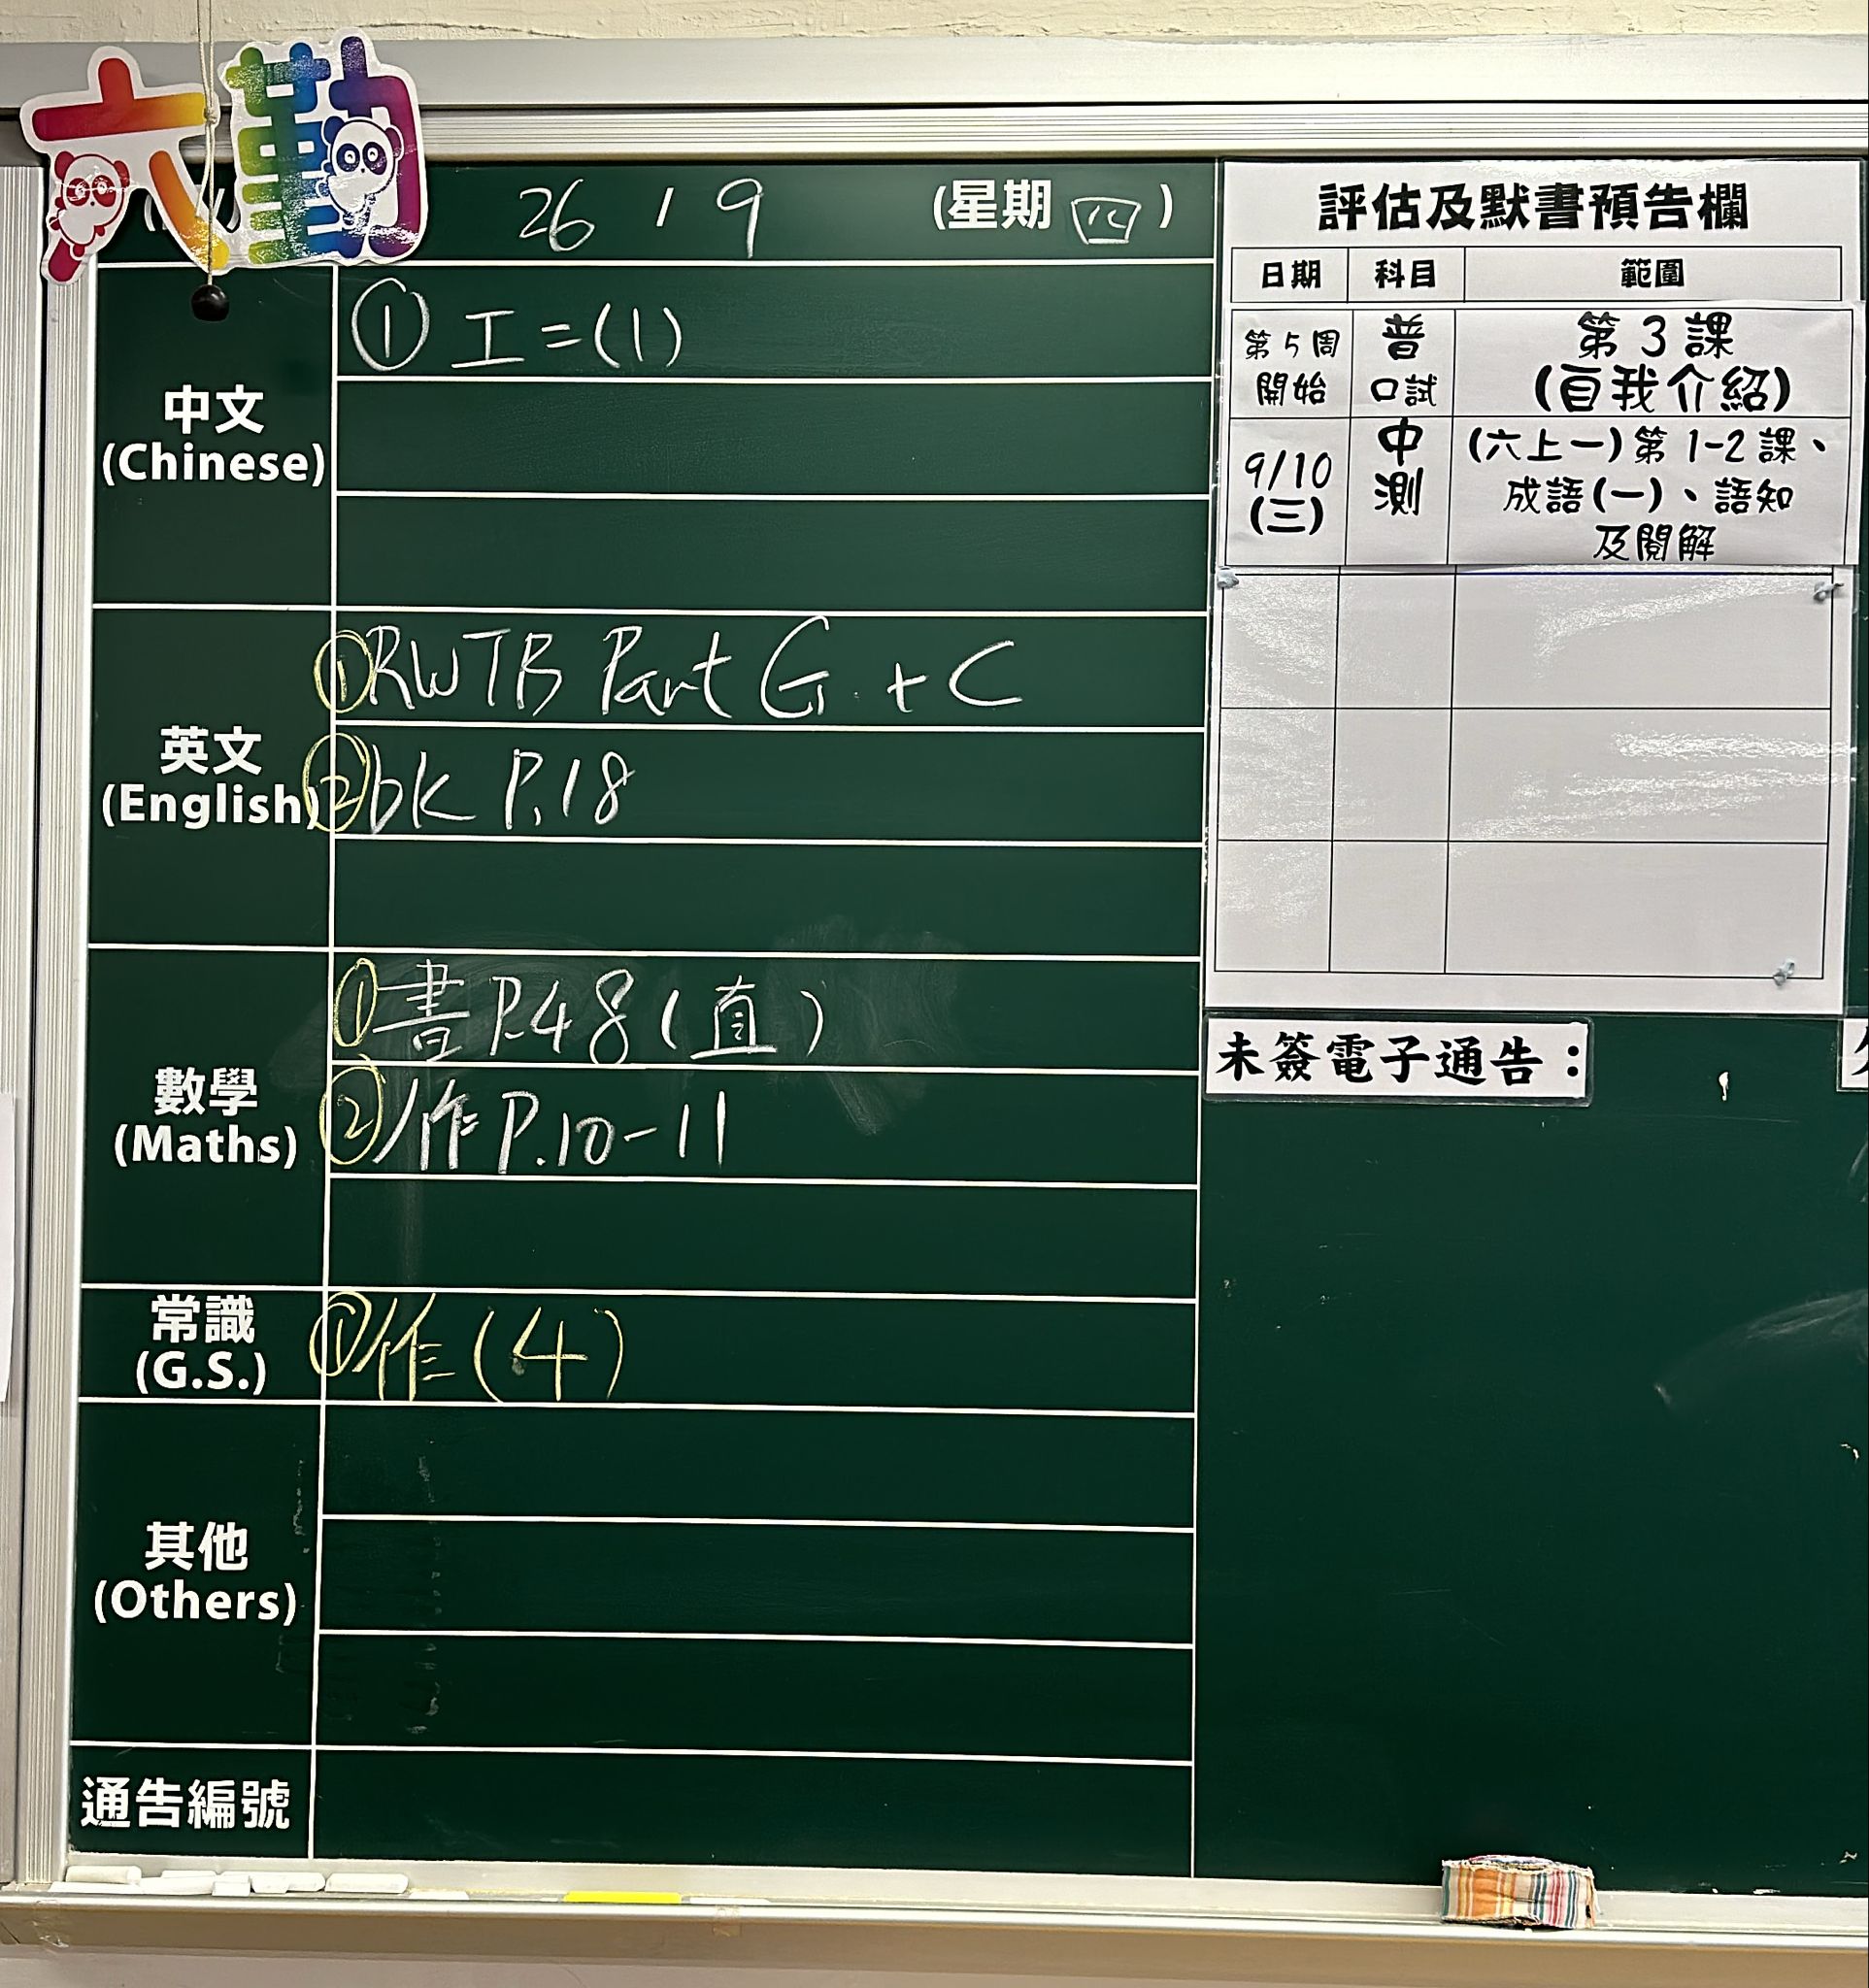 六勤
26 / 9 (星期 四 )
中文
(Chinese)
① 工=(1)
英文
(English)
① RWTB Part G + C
② bk P.18
數學
(Maths)
① 書 P.48 (直)
② 作 P.10-11
常識
(G.S.)
① 作 (4)
其他
(Others)
通告編號
評估及默書預告欄
日期 科目 範圍
第5周 開始
普 口試
第3課
(自我介紹)
9/10
(三)
中
測
(六上一)第1-2課、
成語(一)、語知
及閱解
未簽電子通告：